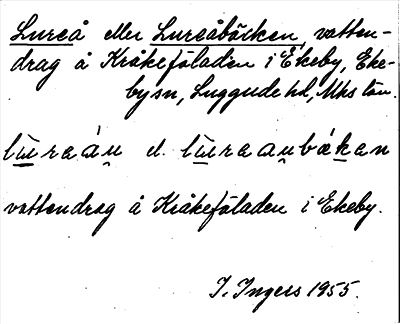 Lureå eller Lureåbäcken, vatten-
drag å Kråkeföladen i Ekeby, Eke-
bysn, Luggude hd, Mhs län.
lùreáu el. lùreaubækan
vattendrag å Kråkeföladen i Ekeby.
I. Ingers 1955.